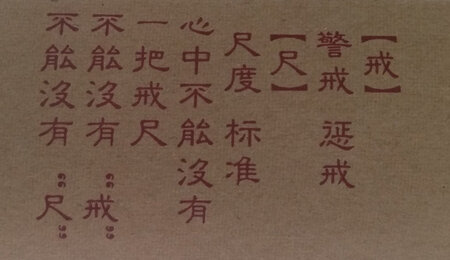 【戒】
警戒 惩戒
【尺】
尺度 标准
心中不能没有
一把戒尺
不能没有“戒”
不能没有“尺”